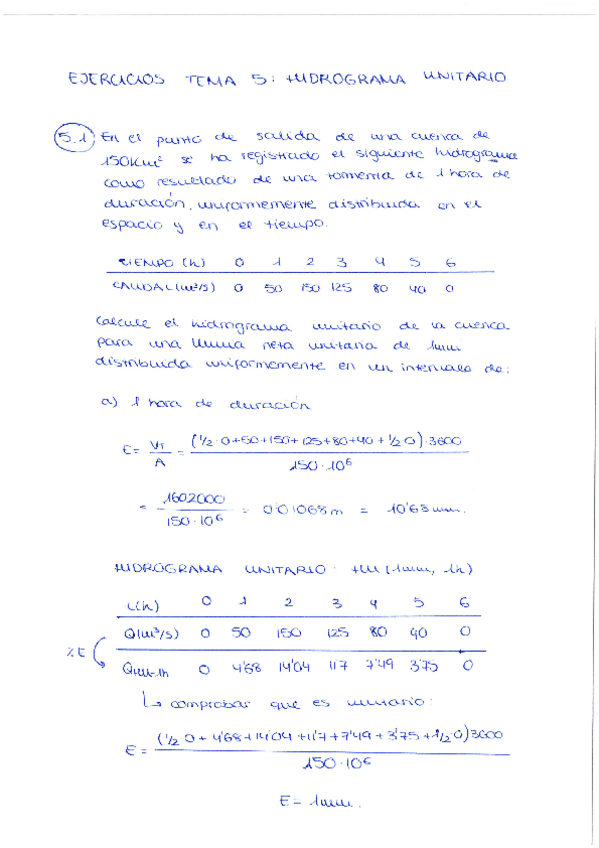 EJERCICIOS TEMA 5: HIDROGRAMA UNITARIO
5.1 En el punto de salida de una cuenca de
150Km² se ha registrado el siguiente hidrograma
como resultado de una tormenta de 1 hora de
duración, uniformemente distribuida en el
espacio y en el tiempo.
TIEMPO (h) 0 1 2 3 4 5 6
CAUDAL (m³/s) 0 50 150 125 80 40 0
Calcule el hidrograma unitario de la cuenca
para una lluvia neta unitaria de 1mm
distribuida uniformemente en un intervalo de:
a) 1 hora de duración
E = VT/A = (1/2·0+50+150+125+80+40+1/2·0)·3600 / 150·10⁶
= 1602000 / 150·10⁶ = 0'01068m = 10'68mm.
HIDROGRAMA UNITARIO: HU (1mm, 1h)
t(h) 0 1 2 3 4 5 6
Q(m³/s) 0 50 150 125 80 40 0
%E
QHU-1h 0 4'68 14'04 11'7 7'49 3'75 0
↳ comprobar que es unitario:
E = (1/2 0+4'68+14'04+11'7+7'49+3'75+1/2 0)3600 / 150·10⁶
E = 1mm.